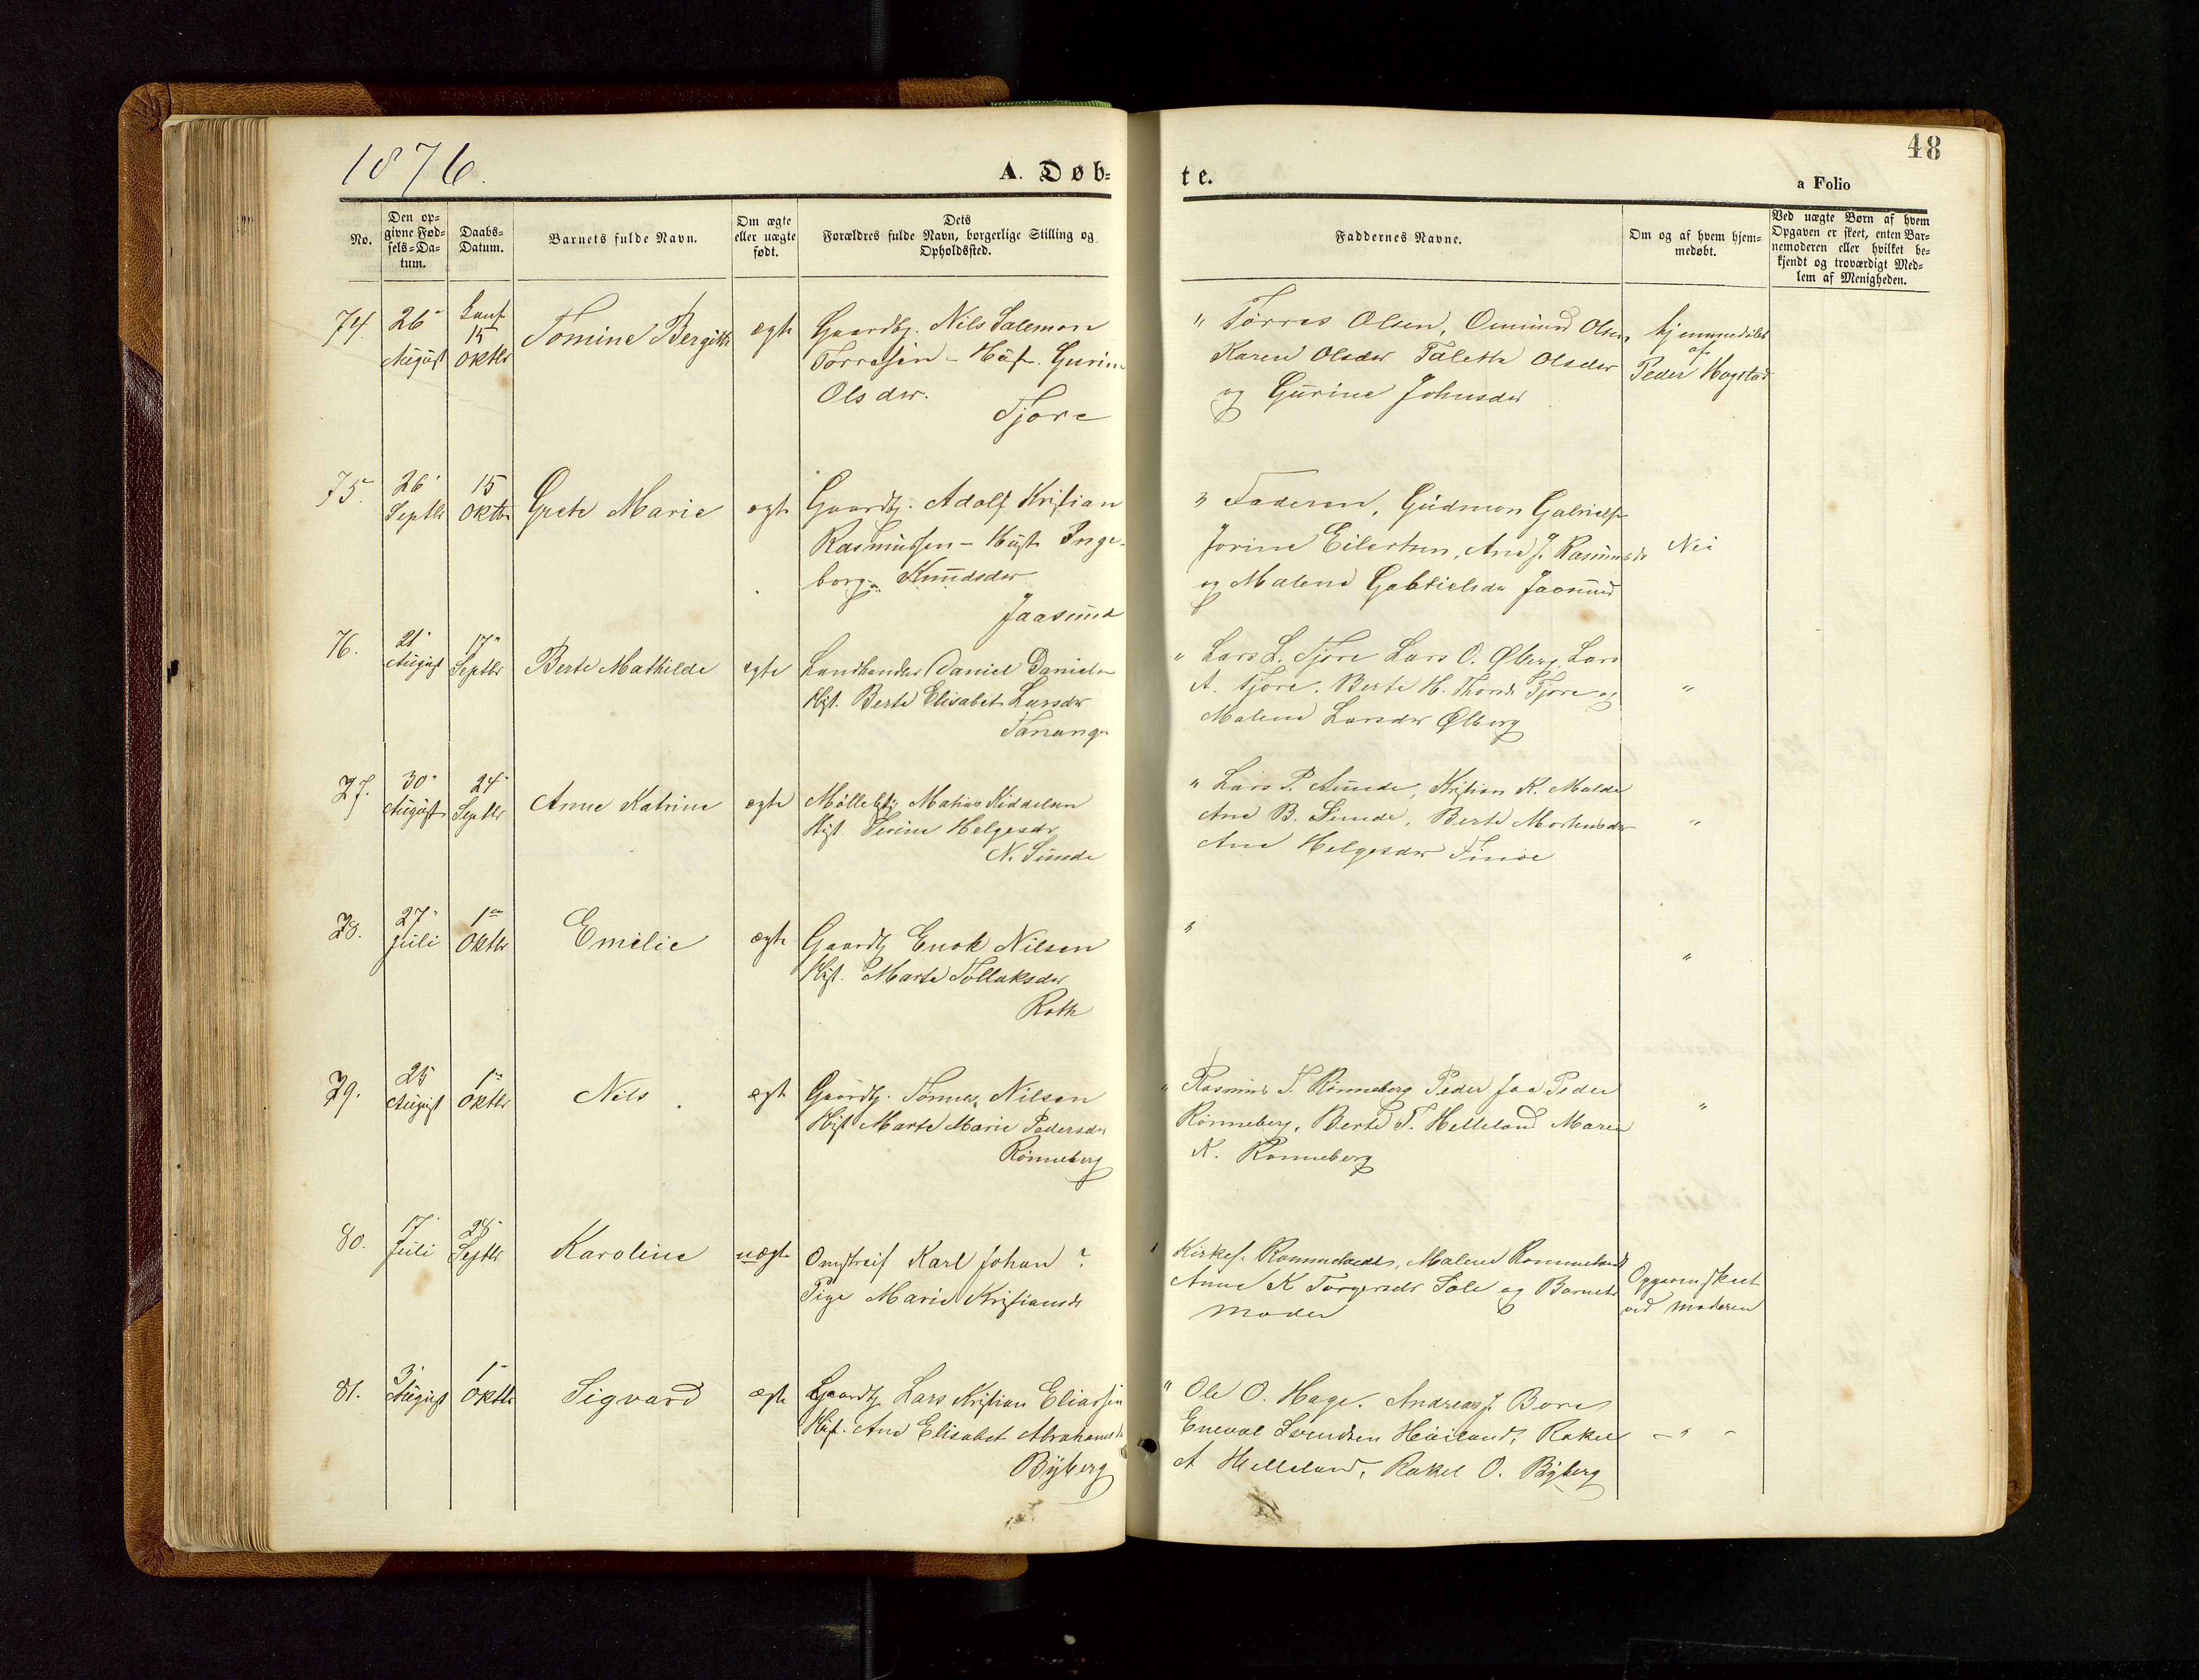 1876.
A. Døb=
te.
48
a Folio
No.
Den op=
givne Fød=
sels=Da=
tum.
Daabs=
Datum.
Barnets fulde Navn.
Om ægte
eller uægte
født.
Dets
Forældres fulde Navn, borgerlige Stilling og
Opholdssted.
Faddernes Navne.
Om og af hvem hjem=
medøbt.
Ved uægte Børn af hvem
Opgaven er skeet, enten Bar=
nemoderen eller hvilket be=
kjendt og troværdigt Med=
lem af Menigheden.
74.
26
August
15
Oktbr
Tomine Bergitte
egte
Gaardbr. Nils Salemon
Torresen - Hust. Gurine
Olsdtr.
Tjore
" Tørres Olsen, Omund Olsen,
Karen Olsdtr Talette Olsdtr
og Gurine Johnsdtr
hjemmedöbt
af
Peder Hogstad
75.
26
Septbr
15
Oktbr
Grete Marie
egte
Gaardbr. Adolf Kristian
Rasmussen - Hust Inge-
borg Knudsdtr
Jaasund
" Faderen, Gudmon Gabrielsen
Jorine Eilertsen, Ane J. Rasmusdtr
og Malene Gabrielsdtr Jaasund
Nei
76.
21
August
17
Septbr
Berte Mathilde
egte
Landhandler Daniel Danielsen
Hust. Berte Elisabet Larsdtr
Tananger
" Lars L. Tjore Lars O. Ølberg, Lars
A. Tjore. Berte H. Thords Tjore og
Malene Larsdtr Ølberg
"
77.
30
August
24
Septbr
Anne Katrine
egte
Møllebyg Matias Kiddelsen
Hust. Serine Helgesdtr
N. Sunde
" Lars P. Sunde, Kristian K. Malde
Ane B. Sunde, Berte Mortensdtr
Ane Helgesdtr Finøe
"
78.
27
Juli
1
Oktbr
Emilie
ægte
Gaardbr Enok Nilsen
Hust. Marta Tollaksdtr
Roth
"
"
79.
25
August
1
Oktbr
Nils
egte
Gaardbr. Tønnes Nilsen
Hust Marte Marie Pedersdtr
Rönneberg
" Rasmus T. Rönneberg Peder Joa Peder
Rönneberg, Berte T. Helleland Maren
K. Rönneberg
"
80.
17
Juli
28
Septbr
Karoline
uægte
Omstreif Karl Johan ?
Pige Marie Kristiansdtr
Anne K Torgersdtr Sole og Barnets
Moder
Opgaven skeet
ved moderen
81.
3
August
1
Oktbr
Sigvard
ægte
Gaardbr Lars Kristian Eliassen
Hust. Ane Elisabet Abrahamsdtr
Byberg
" Ole O. Hage. Andreas J. Bore
Eneval Svendsen Höiland, Rakel
A Helleland, Rakel O. Byberg
- " -